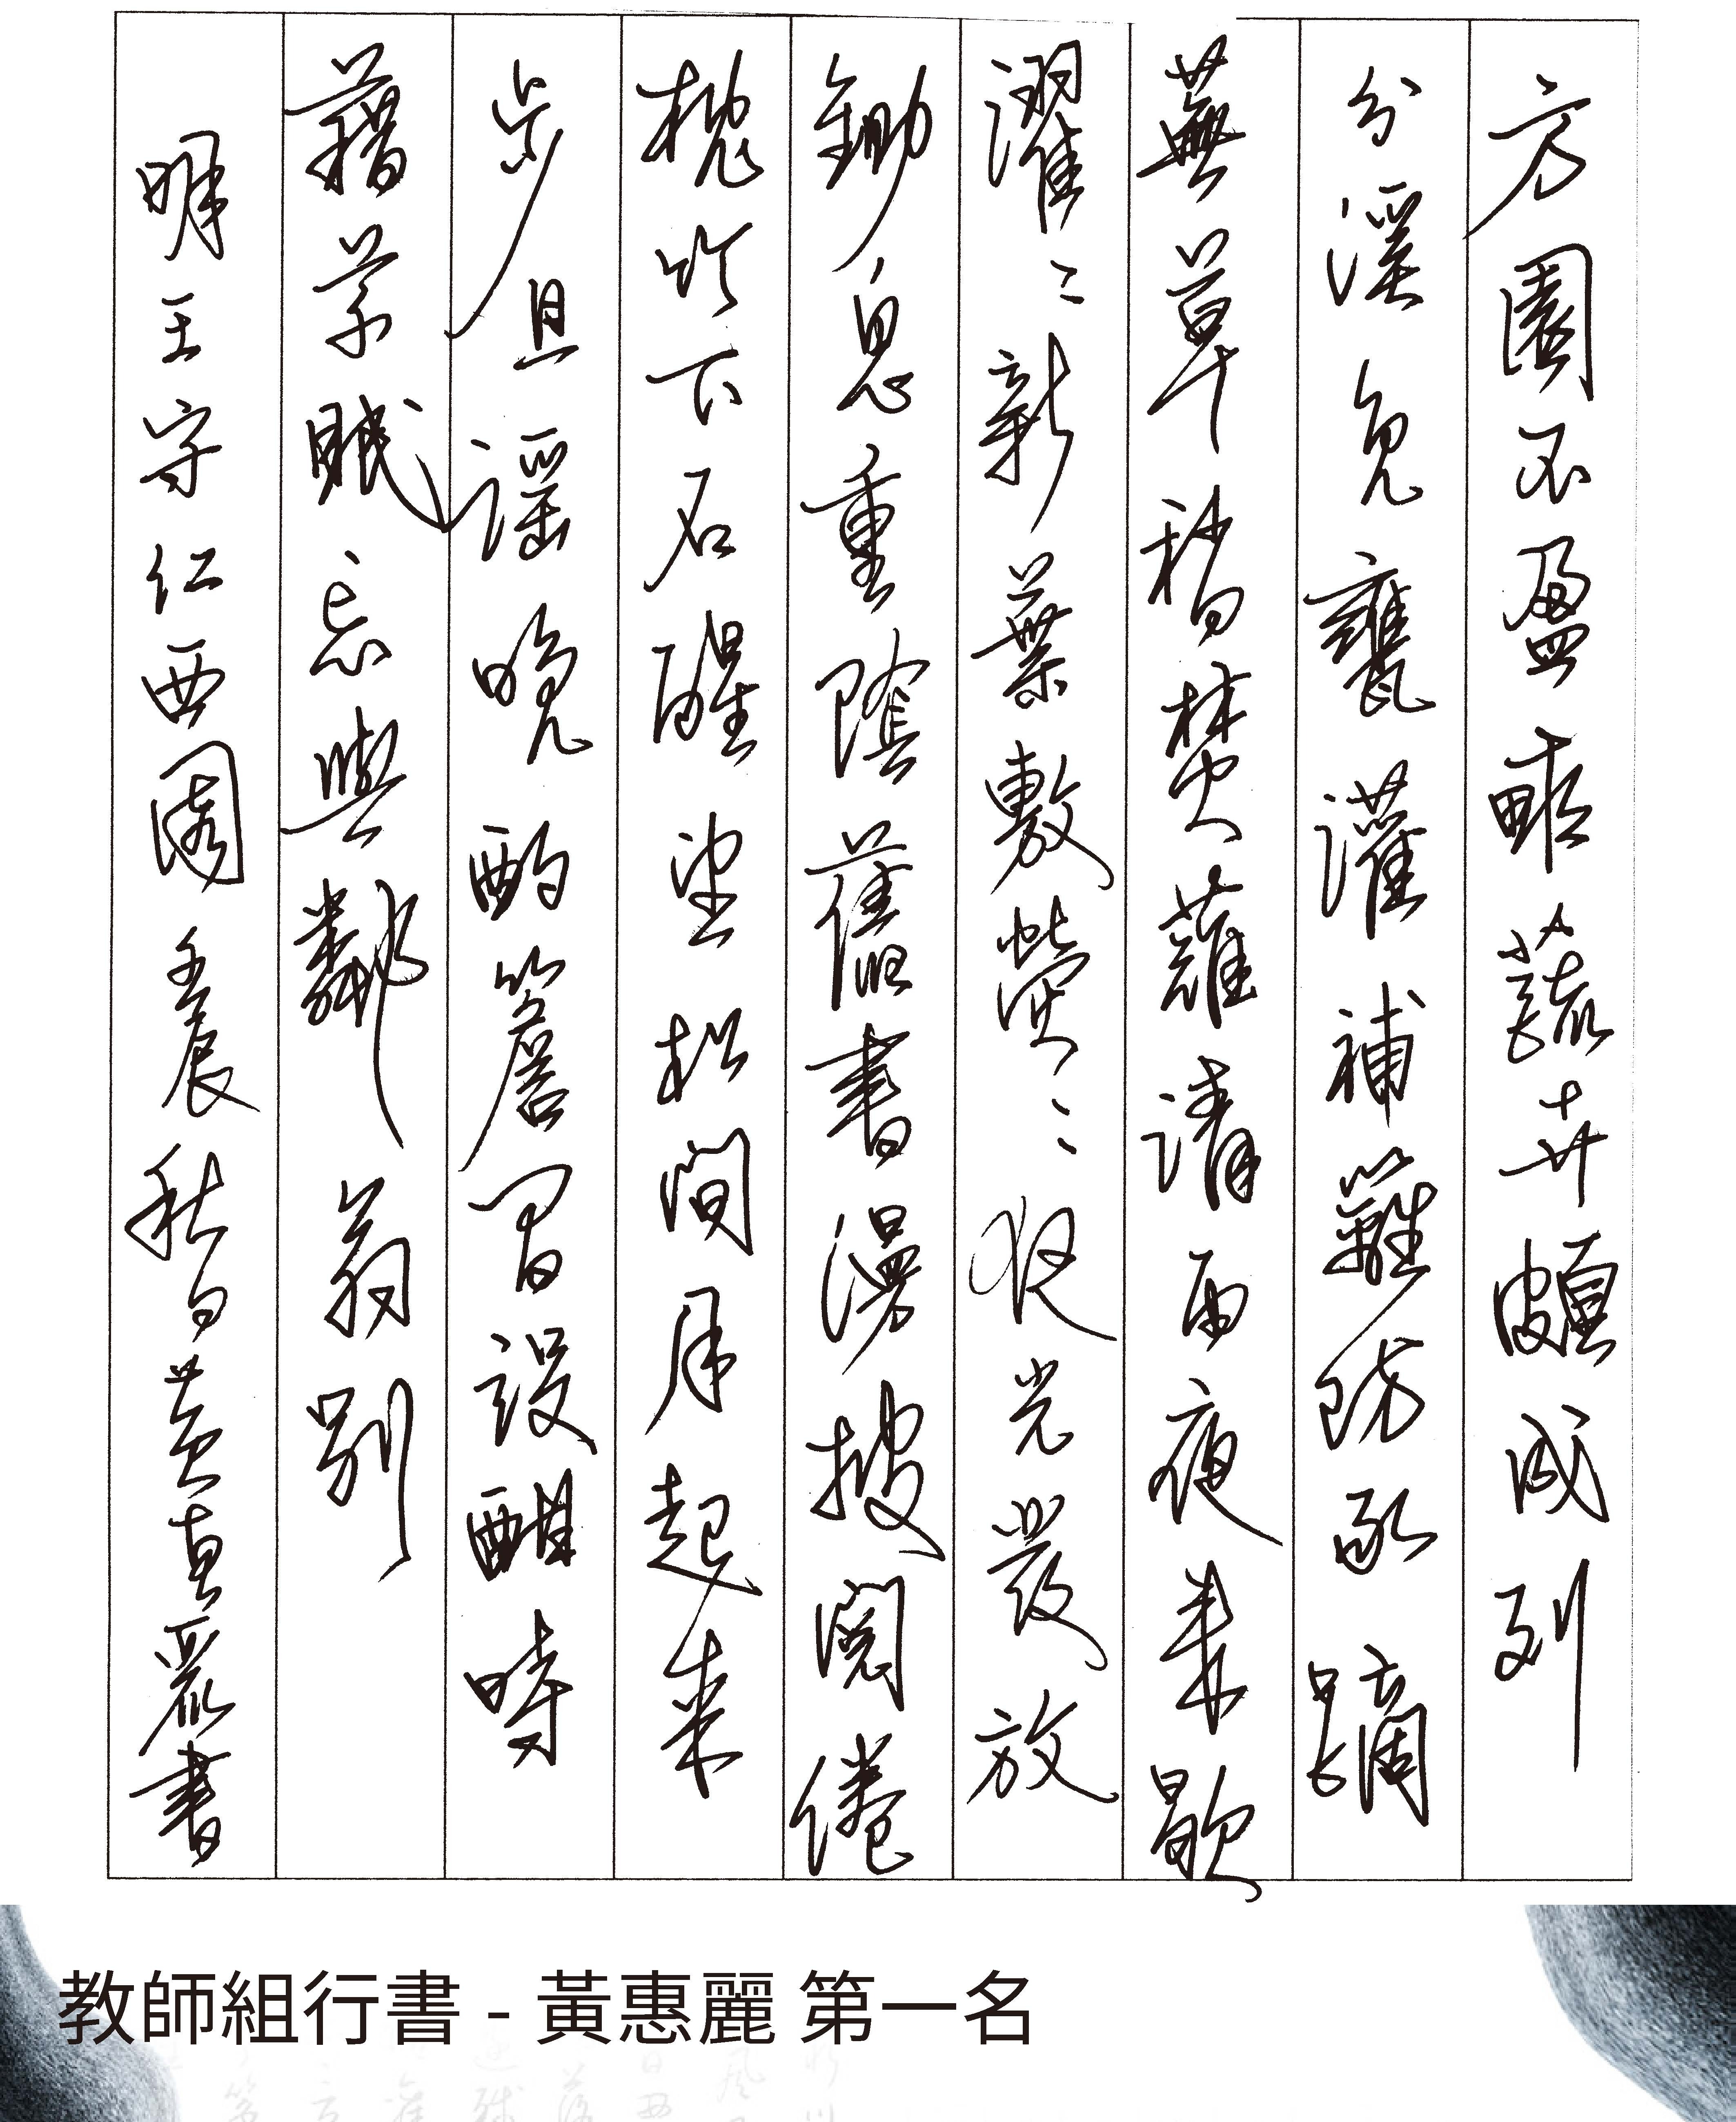 方園不盈畝蔬卉頗成列
分溪免甕灌補籬防豕蹢
蕪草稍焚薙清雨夜來歇
濯〻新葉敷熒〻夜光發放
鋤息重陰舊書漫披閱倦
枕竹下石醒望松間月起來
步且謠晚酌簷間設酣時
藉草眠忘與鄰翁別
明王守仁西園壬辰秋日黃惠麗書
教師組行書 - 黃惠麗 第一名